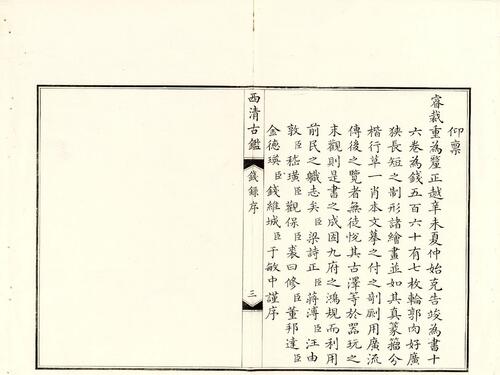 仰稟
睿裁重為釐正越辛未夏仲始克告竣為書十
六卷為錢五百六十有七枚輪郭肉好廣
狹長短之制形諸繪畫並如其真篆籀分
楷行草一肖本文摹之付之剞劂用廣流
傳後之覽者無徒悅其古澤等於器玩之
末觀則是書之成固九府之鴻規而利用
前民之職志矣臣梁詩正臣蔣溥臣汪由
敦臣嵇璜臣觀保臣裘曰修臣董邦達臣
金德瑛臣錢維城臣于敏中謹序
西清古鑑
錢錄序
三